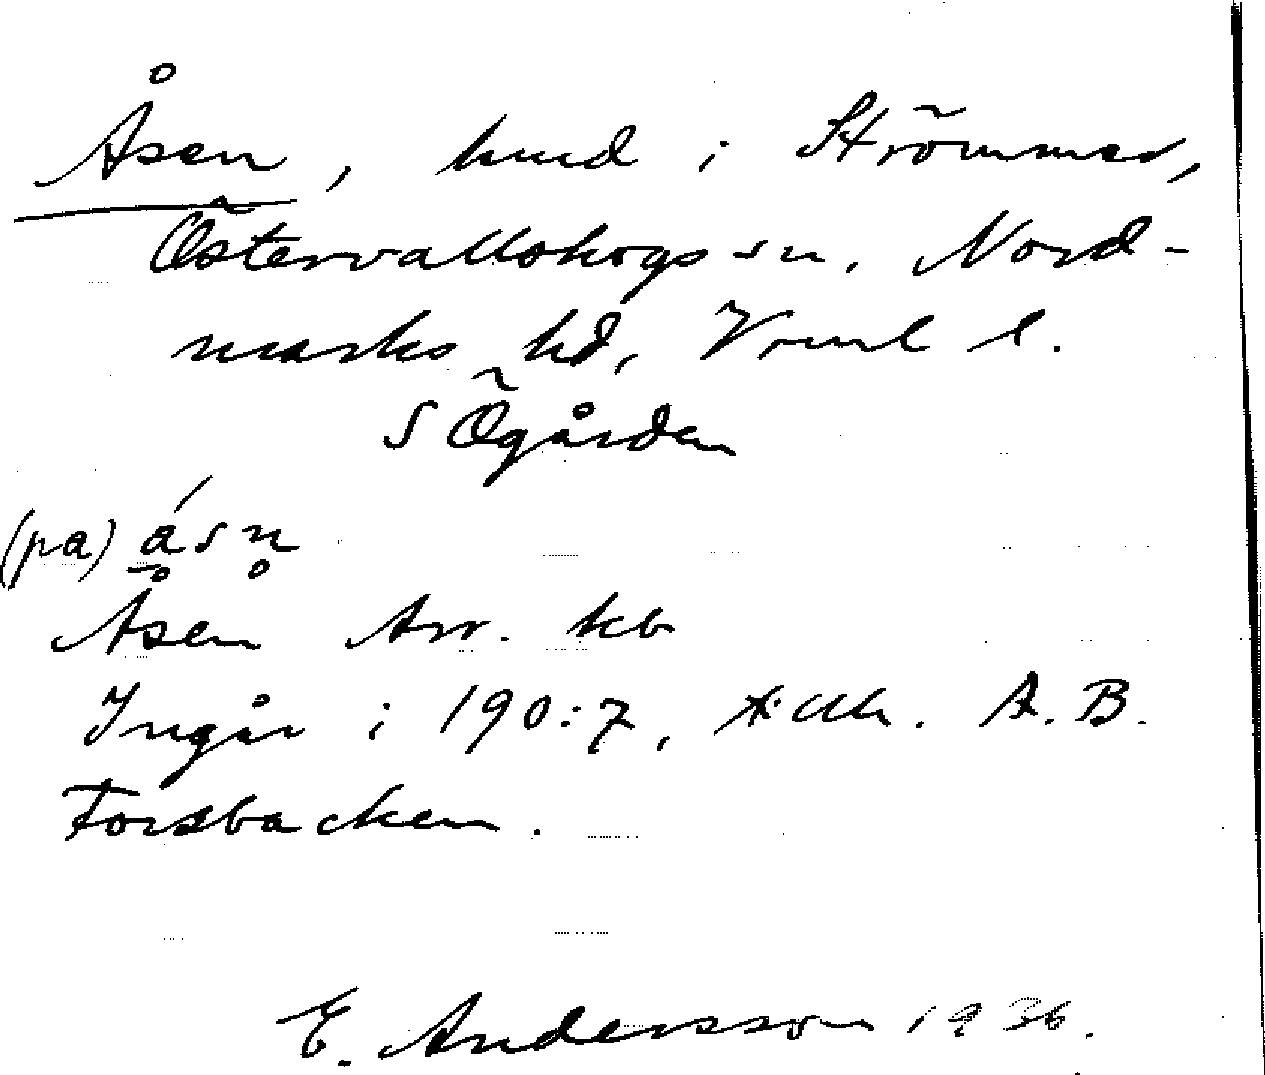 Åsen, hmd i Strömmer,
Östervallskogs sn. Nord-
marks hd, Vrml l.
S Ögården
(pa) åsn̥
Åsen Arr. kb
Ingår i 190:7, A. B.
Forsbacken.
E. Andersson 1936.